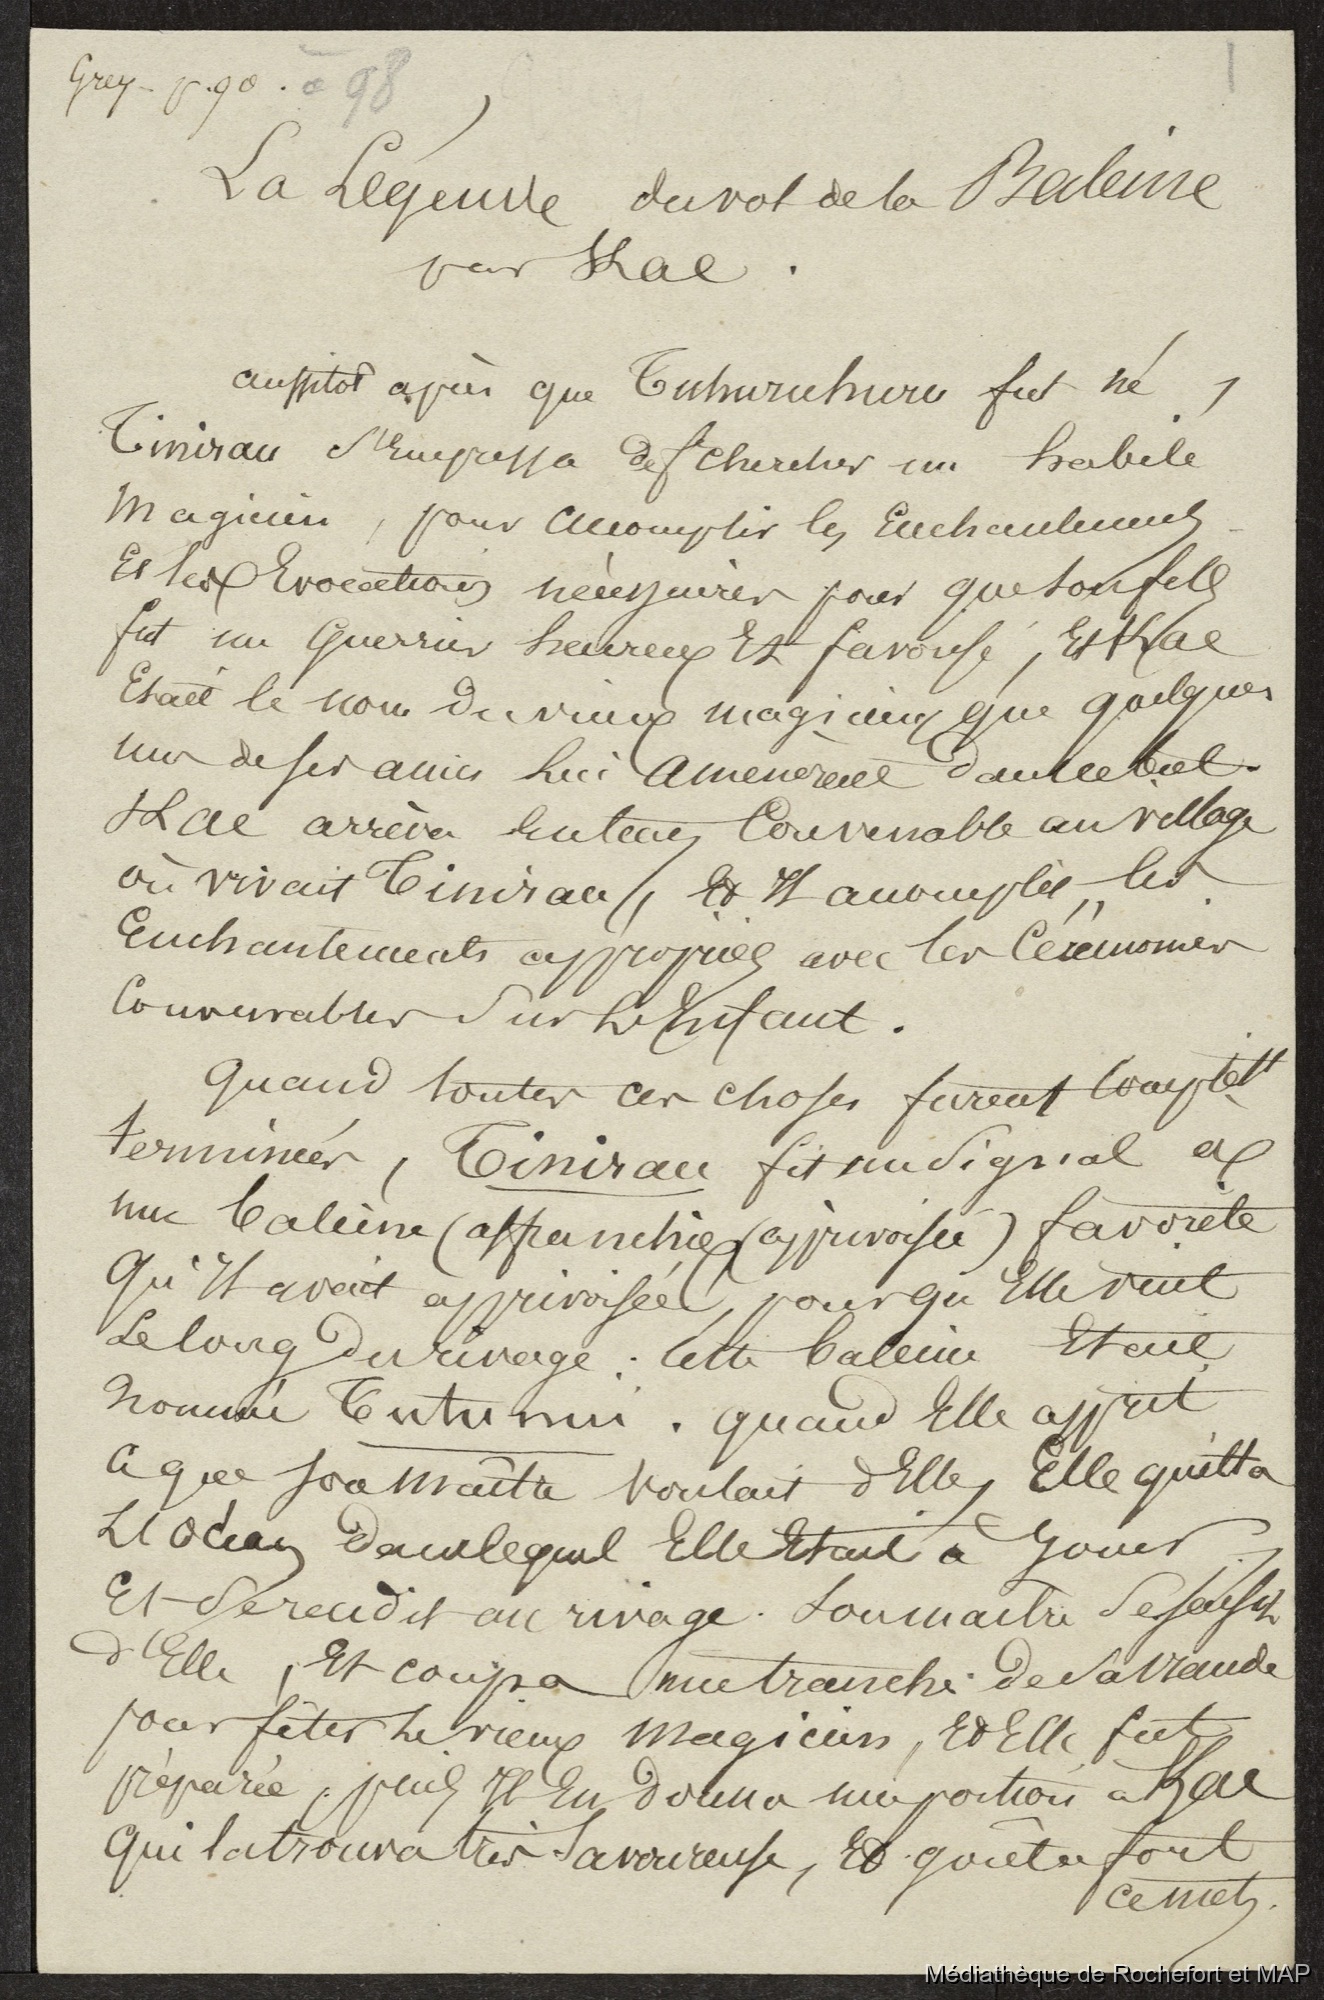 Grey - p. 90. à 98
1
La Légende du vol de la Baleine
par Kae.
aussitot après que Tuhuruhuru fut né,
Tinirau s'Empressa de chercher un habile
Magicien, pour accomplir les Enchantements
Et les Evocations nécessaires pour que son fils
fut un Guerrier heureux Et favorisé, Et Kae
Etait le nom du vieux magicien que quelques
uns de ses amis lui Amenèrent dans ce but.
Kae arriva En temps Convenable au village
où vivait Tinirau, Et Il accomplit les
Enchantements appropriés avec les Cérémonies
Convenables Sur L'Enfant.
Quand toutes ces choses furent Complètt
terminées, Tinirau fit un Signal a
une baleine (affranchie (apprivoisée) favorite
Qu'Il avait apprivoisée, pour qu'Elle vint
Le long du rivage. Cette baleine Etait
nommé Tutunui. Quand Elle apprit
ce que son Maître voulait d'Elle, Elle quitta
L'Océan dans lequel Elle Etait à Jouer,
Et Se rendit au rivage. Son maitre Se saisit
d'Elle, Et coupa une tranche de Sa viande
pour fêter Le vieux Magicien, Et Elle fut
préparée, puis Il En donna une portion à Kae
Qui la trouva très Savoureuse, Et goûta fort
ce mets.
Médiathèque de Rochefort et MAP